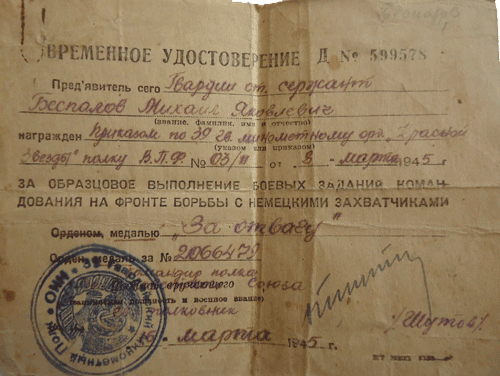 ВРЕМЕННОЕ УДОСТОВЕРЕНИЕ Д № 599578
Пред'явитель сего Гвардии ст. сержант
Беспалов Михаил Яковлевич
(звание, фамилия, имя и отчество)
награжден приказом по 39 гв. минометному орд. „Красной
(указом или приказом)
Звезды" полку В.П.Ф № 03/н от 9 - марта 1945 г
ЗА ОБРАЗЦОВОЕ ВЫПОЛНЕНИЕ БОЕВЫХ ЗАДАНИЙ КОМАН-
ДОВАНИЯ НА ФРОНТЕ БОРЬБЫ С НЕМЕЦКИМИ ЗАХВАТЧИКАМИ
Орденом, медалью „За отвагу"
Орден, медаль за № 2066479
Командир полка
Союза
должность и военное звание)
марта 1945 г.
/Шутов/